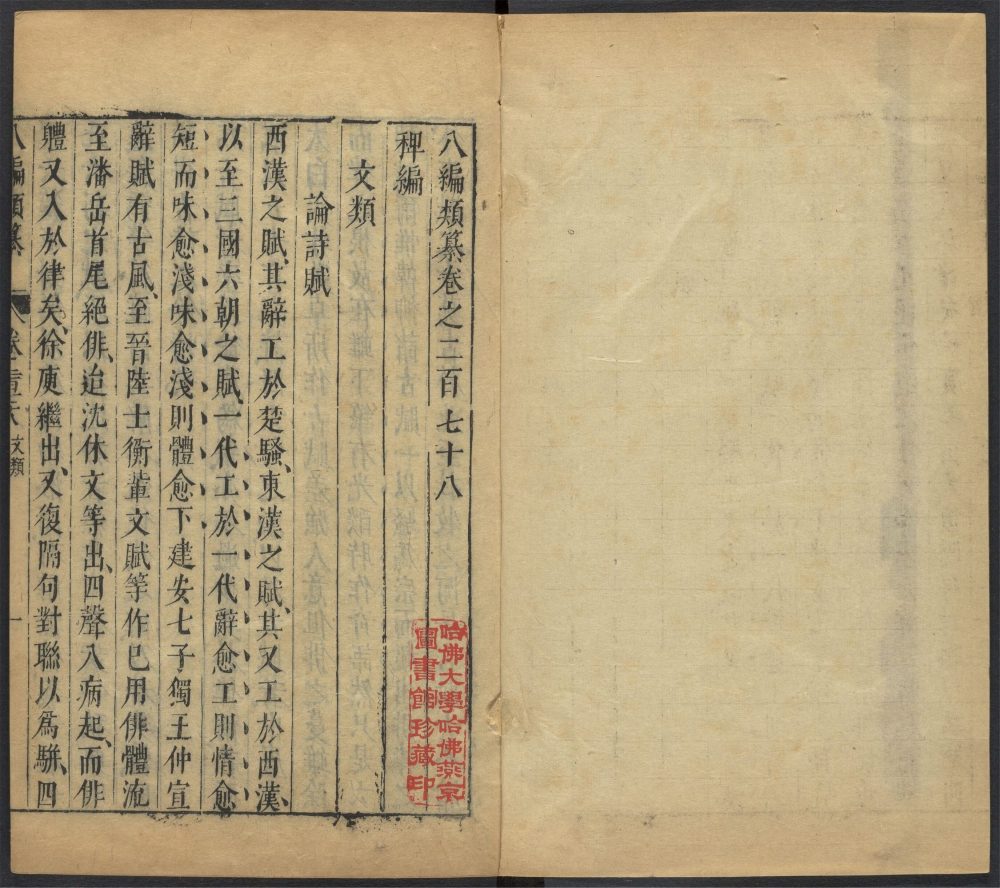 八編類纂卷之二百七十八
稗編
文類
論詩賦
西漢之賦、其辭工於楚騷、東漢之賦、其又工於西漢、
以至三國六朝之賦、一代工於一代、辭愈工則情愈
短而味愈淺、味愈淺則體愈下、建安七子獨王仲宣
辭賦有古風、至晉陸士衡輩文賦等作已用俳體流
至潘岳首尾絕俳、迨沈休文等出、四聲八病起、而俳
體又入於律矣、徐庾繼出、又復隔句對聯以爲騈、四
八編類纂
文類
一
哈佛大學哈佛燕京
圖書館珍藏印